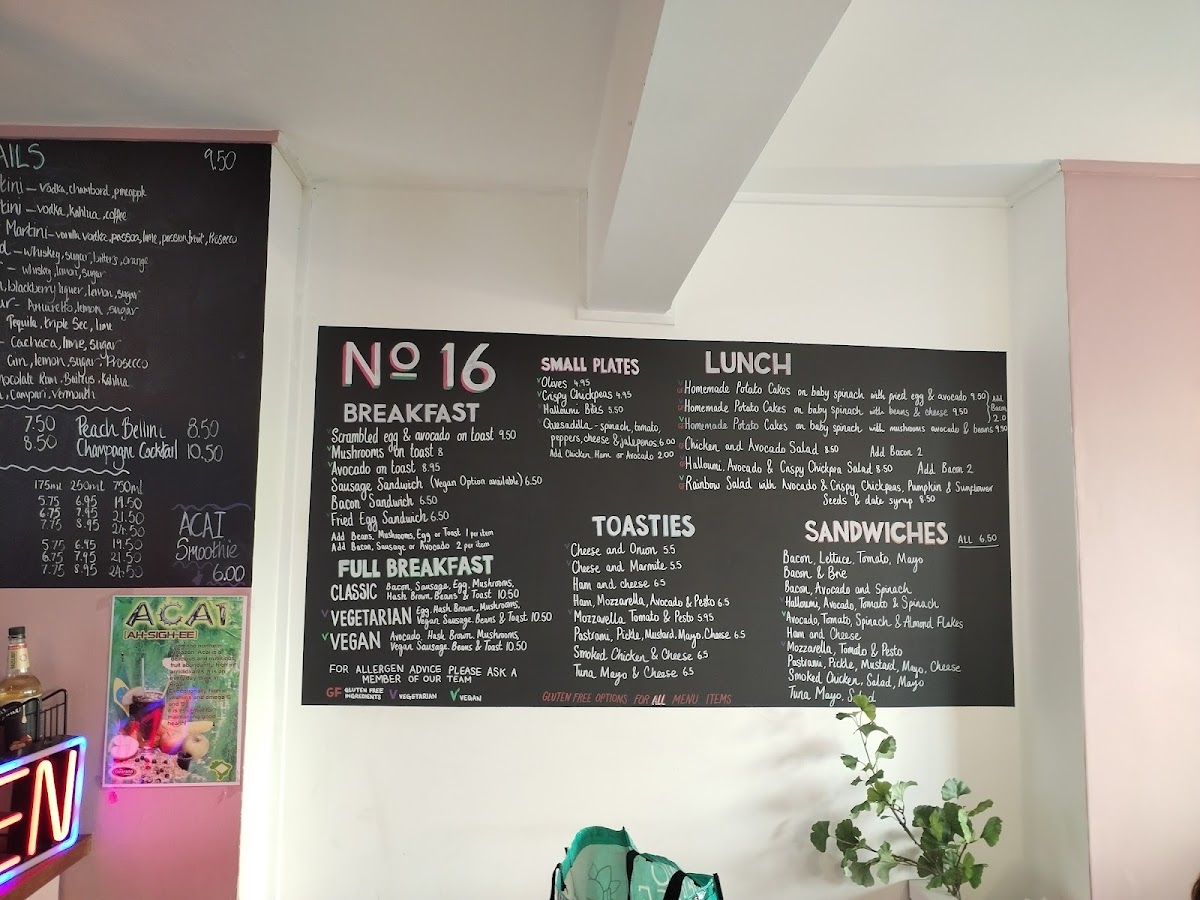 AILS 9.50
tini – Vodka, chambord, pineapple
tini – vodka, kahlua, coffee
Martini – vanilla vodka, passoa, lime, passion fruit, Prosecco
d – whiskey, sugar, bitters, orange
– whisky, lemon, sugar
blackberry liquer, lemon, sugar
ur – Amaretto, lemon, sugar
Tequila, triple Sec, lime
– Cachaca, lime, sugar
Gin, lemon, sugar, Prosecco
hocolate Rum, Baileys, Kahlua
, Campari, Vermouth
7.50 Peach Bellini 8.50
8.50 Champagne Cocktail 10.50
175ml 250ml 750ml
5.75 6.95 19.50
6.75 7.95 21.50
7.75 8.95 24.50
5.75 6.95 19.50
6.75 7.95 21.50
7.75 8.95 24.50
ACAI
Smoothie
6.00
ACAI
[AH-SIGH-EE]
EN
No 16
BREAKFAST
Scrambled egg & avocado on toast 9.50
Mushrooms on toast 8
Avocado on toast 8.95
Sausage Sandwich (Vegan Option available) 6.50
Bacon Sandwich 6.50
Fried Egg Sandwich 6.50
Add Beans, Mushrooms, Egg or Toast 1 per item
Add Bacon, Sausage or Avocado 2 per item
FULL BREAKFAST
CLASSIC Bacon, Sausage, Egg, Mushrooms,
Hash Brown, Beans & Toast 10.50
V VEGETARIAN Egg, Hash Brown, Mushrooms,
Vegan Sausage, Beans & Toast 10.50
V VEGAN Avocado, Hash Brown, Mushrooms,
Vegan Sausage, Beans & Toast 10.50
FOR ALLERGEN ADVICE PLEASE ASK A
MEMBER OF OUR TEAM
GF GLUTEN FREE
INGREDIENTS V VEGETARIAN V VEGAN
SMALL PLATES
V Olives 4.95
V Crispy Chickpeas 4.95
V Halloumi Bites 5.50
V Quesadilla – spinach, tomato,
peppers, cheese & jalepenos 6.00
Add Chicken, Ham or Avocado 2.00
LUNCH
V GF Homemade Potato Cakes on baby spinach with fried egg & avocado 9.50
V GF Homemade Potato Cakes on baby spinach with beans & cheese 9.50
V GF Homemade Potato Cakes on baby spinach with mushrooms avocado & beans 9.50
Add
Bacon
2.0
GF Chicken and Avocado Salad 8.50 Add Bacon 2
V GF Halloumi, Avocado & Crispy Chickpea Salad 8.50 Add Bacon 2
V GF Rainbow Salad with Avocado & Crispy Chickpeas, Pumpkin & Sunflower
Seeds & date syrup 8.50
TOASTIES
V Cheese and Onion 5.5
V Cheese and Marmite 5.5
Ham and cheese 6.5
Ham, Mozzarella, Avocado & Pesto 6.5
V Mozzarella Tomato & Pesto 5.95
Pastrami, Pickle, Mustard, Mayo, Cheese 6.5
Smoked Chicken & Cheese 6.5
Tuna Mayo & Cheese 6.5
GLUTEN FREE OPTIONS FOR ALL MENU ITEMS
SANDWICHES ALL 6.50
Bacon, Lettuce, Tomato, Mayo
Bacon & Brie
Bacon, Avocado and Spinach
V Halloumi, Avocado, Tomato & Spinach
V Avocado, Tomato, Spinach & Almond Flakes
Ham and Cheese
V Mozzarella, Tomato & Pesto
Pastrami, Pickle, Mustard, Mayo, Cheese
Smoked Chicken, Salad, Mayo
Tuna Mayo, Salad